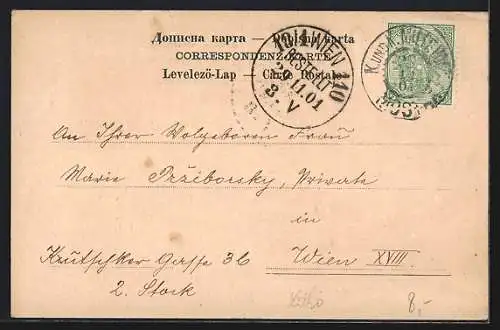 Дописна карта — Poštna karta
CORRESPONDENZKARTE
Levelező-Lap — Carte Postale
18/1 WIEN 110
BESTELLT
20.11.01
8.V
An Ihrer Wolgeboren Frau
Marie Pržiborsky, Private
in
Kutschker Gasse 36
Wien XVIII.
2. Stock
8,-